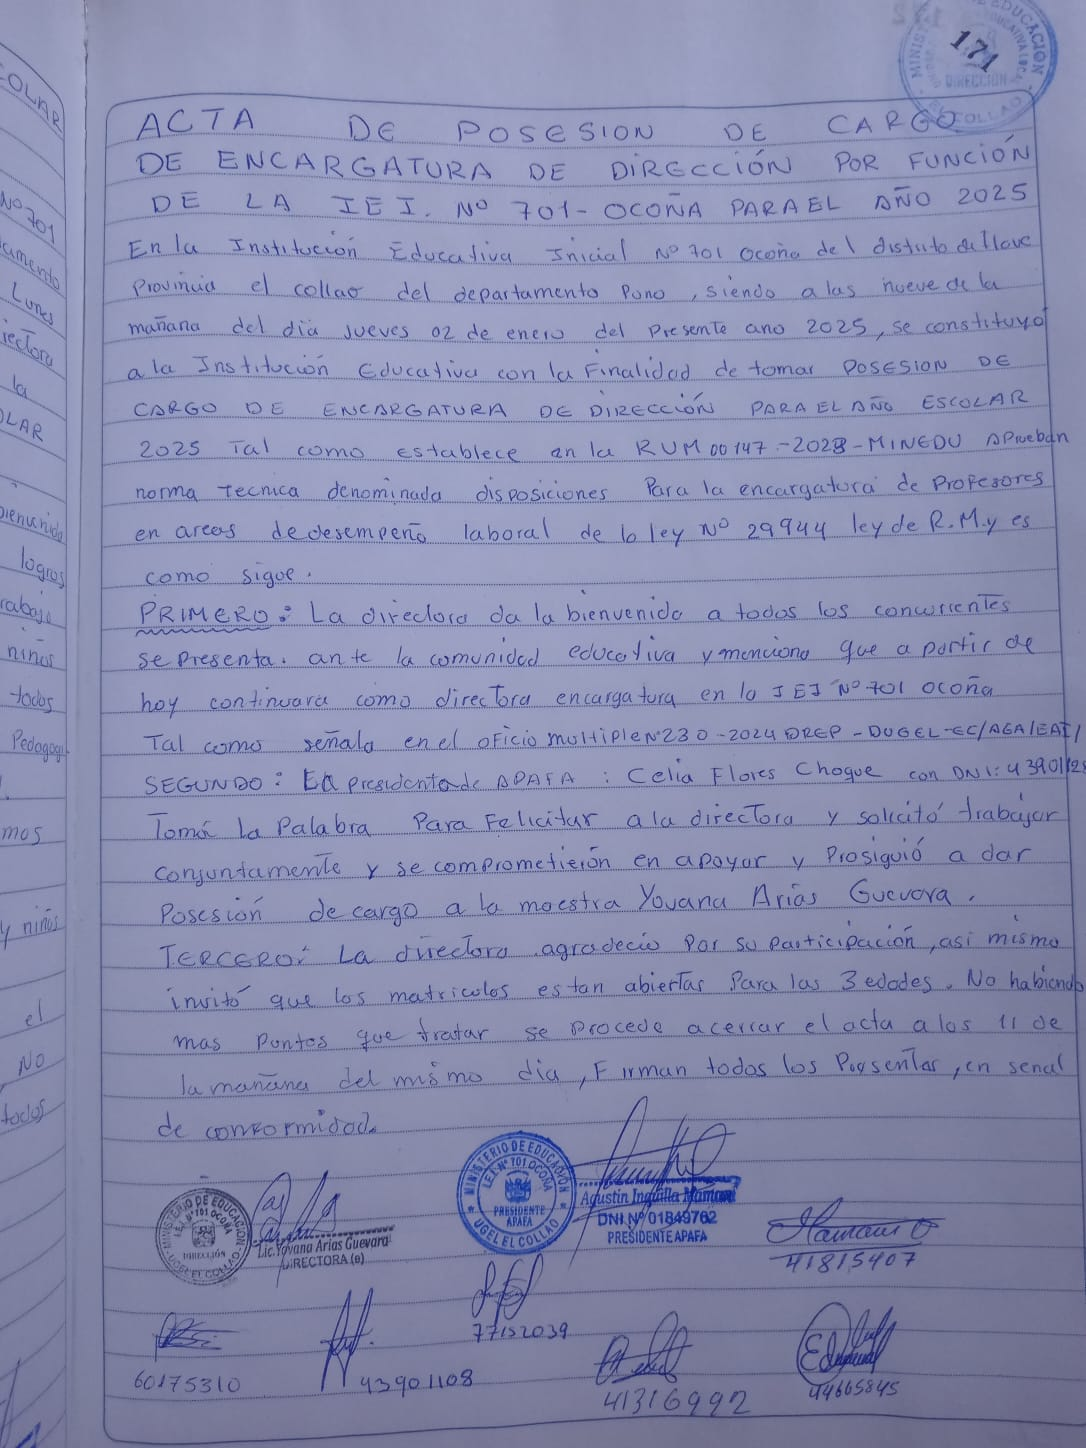 171
ACTA DE POSESION DE CARGO
DE ENCARGATURA DE DIRECCIÓN POR FUNCIÓN
DE LA IEI. Nº 701-OCOÑA PARA EL AÑO 2025
En la Institución Educativa Inicial Nº 701 Ocoña del distrito de Ilave
Provincia el collao del departamento Puno, siendo a las nueve de la
mañana del día jueves 02 de enero del presente ano 2025, se constituyo
a la Institución Educativa con la Finalidad de tomar POSESION DE
CARGO DE ENCARGATURA DE DIRECCIÓN PARA EL AÑO ESCOLAR
2025 Tal como establece en la RVM 00147-2023-MINEDU Aprueban
norma tecnica denominada disposiciones Para la encargatura de Profesores
en areas de desempeño laboral de la ley Nº 29944 ley de R.M. y es
como sigue.
PRIMERO: La directora da la bienvenida a todos los concurrentes
se presenta. ante la comunidad educativa y menciona que a partir de
hoy continuara como directora encargatura en la IEI Nº 701 Ocoña
Tal como señala en el oficio multiple Nº 230-2024 DREP-DUGEL-EC/AGA/EAEI/
SEGUNDO: La presidenta de APAFA: Celia Flores Choque con DNI: 4390112
Tomá la Palabra Para Felicitar a la directora y solicitó trabajar
conjuntamente y se comprometierón en apoyar y Prosiguió a dar
Posesión de cargo a la maestra Yovana Arias Guevara.
TERCERO: La directora agradeció Por su participación, así mismo
invitó que los matriculos estan abiertas Para las 3 edades. No habiendo
mas puntos que tratar se procede a cerrar el acta a los 11 de
la mañana del mismo dia, Firman todos los Presentes, en senal
de conformidad.
MINISTERIO DE EDUCACIÓN
I.E.I. Nº 701 OCOÑA
DIRECCIÓN
UGEL EL COLLAO
Lic. Yovana Arias Guevara
DIRECTORA (e)
MINISTERIO DE EDUCACIÓN
I.E.I. Nº 701 OCOÑA
PRESIDENTE
APAFA
UGEL EL COLLAO
Agustin Inquilla Mamani
DNI. Nº 01849762
PRESIDENTE APAFA
41815407
77152039
60175310
43901108
41316992
44665845